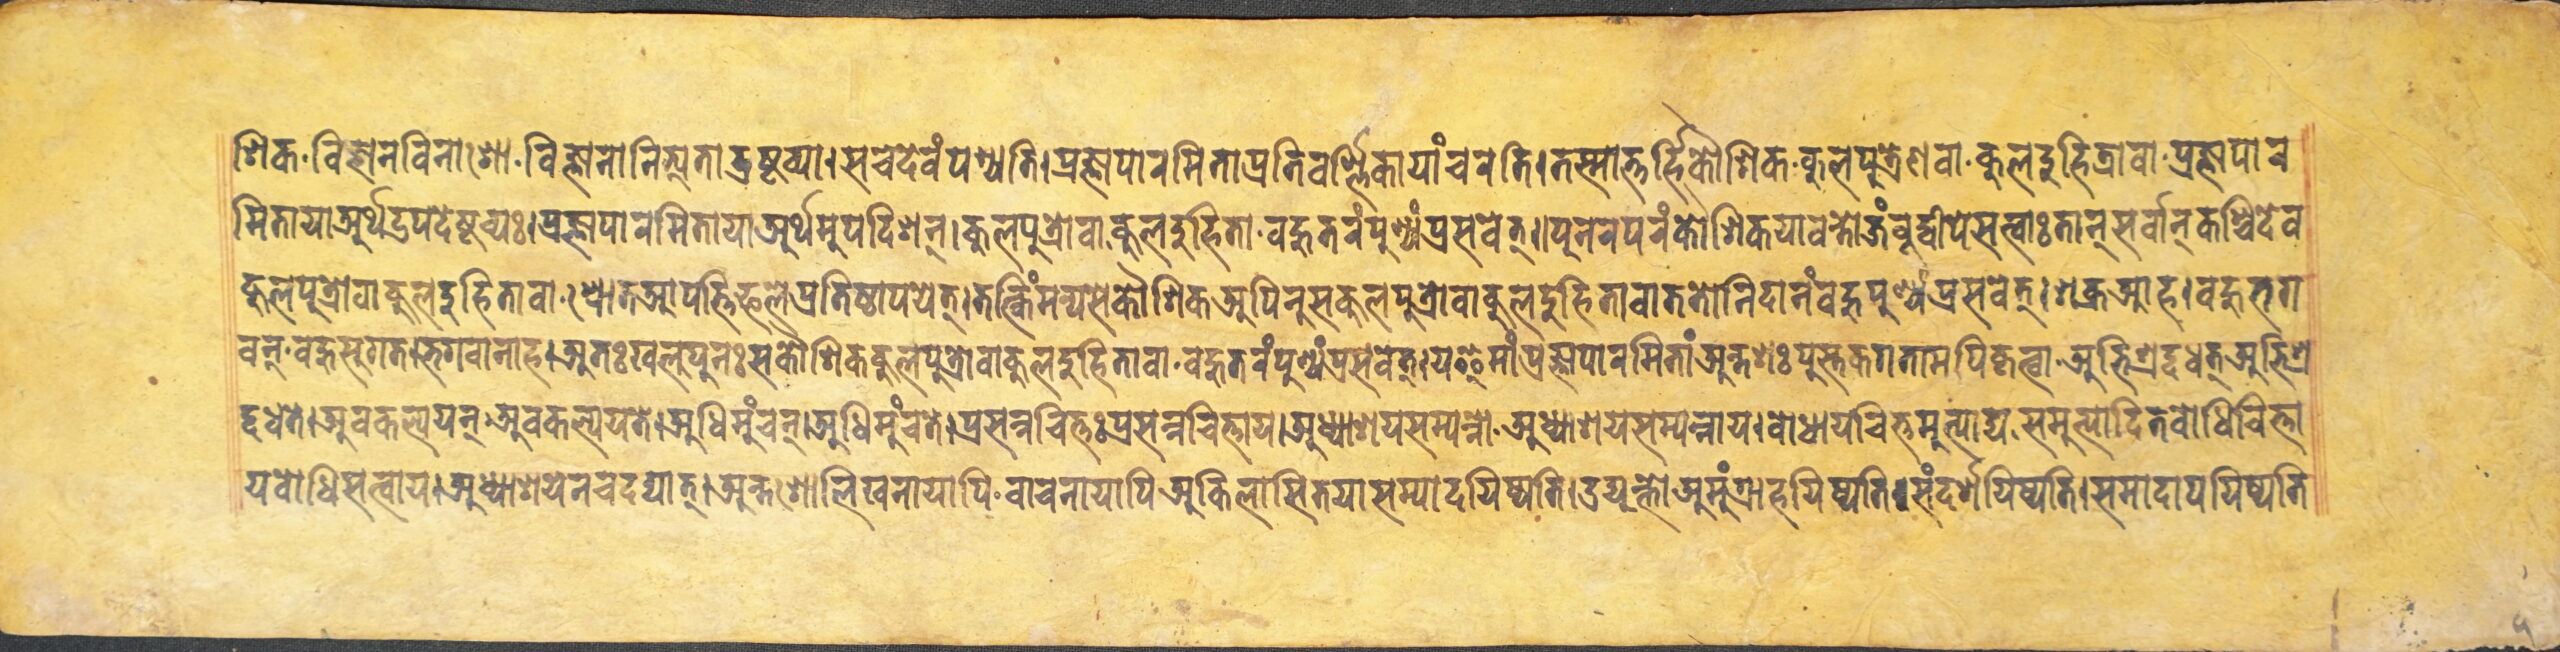 शिक·विज्ञानविनाशो·विज्ञानानित्यता द्रष्टव्या। सचेदेवं पश्यति। प्रज्ञापारमिताप्रतिवर्ण्णिकायां चरति। तस्मात्तर्हि कौशिक·कुलपुत्रेण वा·कुलदुहित्रा वा·प्रज्ञापार
मिताया अर्थ उपदेष्टव्यः। प्रज्ञापारमिताया अर्थमुपदिशन्। कुलपुत्रो वा कुलदुहिता·बहुतरं पुण्यं प्रसवेत्॥ पुनरपरं कौशिक यावन्तो जंबूद्वीपे सत्वाः तान् सर्वान् कश्चिदेव
कुलपुत्रो वा कुलदुहिता वा·श्रोतआपत्तिफले प्रतिष्ठापयेत्। तत्किं मन्यसे कौशिक अपि नु स कुलपुत्रो वा कुलदुहिता वा ततो निदानं बहु पुण्यं प्रसवेत्। शक्र आह। बहु भग
वन्·बहु सुगत। भगवानाह। अतः खलु पुनः स कौशिक कुलपुत्रो वा कुलदुहिता वा·बहुतरं पुण्यं प्रसवेत्। य इमां प्रज्ञापारमितां अन्तशः पुस्तकगतामपि कृत्वा·अभिश्रद्दधत् अभिश्र
द्दधते। अवकल्पयन् अवकल्पयते। अधिमुंचन्। अधिमुंचते। प्रसन्नचित्तः प्रसन्नचित्ताय। अध्याशयसम्पन्नो·अध्याशयसम्पन्नाय। बोधाय चित्तमुत्पाद्य समुत्पादितबोधिचित्ता
य बोधिसत्वाय। अध्याशयेन च दद्यात्। अन्तशो लिखनायापि·वाचनायापि अकिलासितया सम्पादयिष्यति। उद्युक्तो अमुं ग्राहयिष्यति। संदर्शयिष्यति। समादापयिष्यति